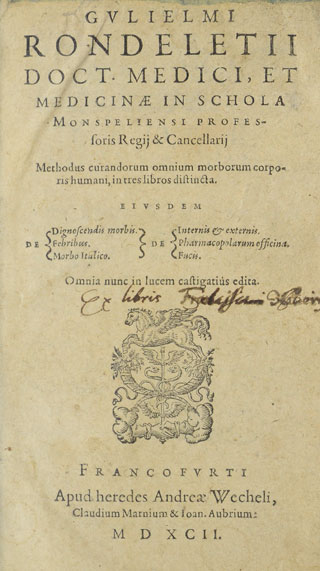 GVLIELMI
RONDELETII
DOCT. MEDICI, ET
MEDICINÆ IN SCHOLA
MONSPELIENSI PROFES-
soris Regij & Cancellarij
Methodus curandorum omnium morborum corpo-
ris humani, in tres libros distincta.
EIVSDEM
DE { Dignoscendis morbis. } DE { Internis & externis.
Febribus. Pharmacopolarum officina.
Morbo Italico. Fucis.
Omnia nunc in lucem castigatius edita.
Ex libris
FRANCOFVRTI
Apud heredes Andreæ Wecheli,
Claudium Marnium & Ioan. Aubrium:
M D XCII.